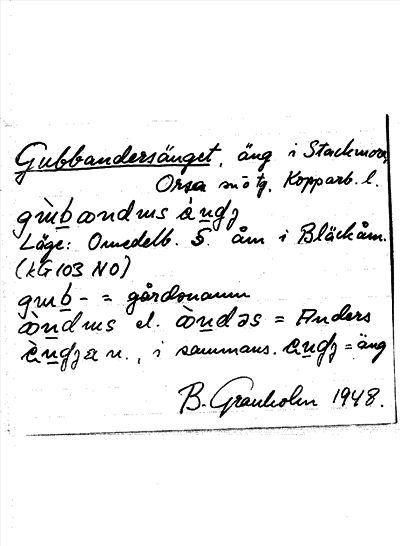 Gubbandersänget, äng i Stackmora,
Orsa sn ö tg, Kopparb. l.
gɯ̀b̲ andɯs ä̀n̲dʒ
Läge: Omedelb. S. åm i Bläckåm.
(kG 103 NO)
gɯb̲ - = gårdsnamn
àn̲dɯs el. àn̲dəs = Anders
ä̀n̲dʒa n., i sammans. än̲dʒ = äng
B. Granholm 1948.